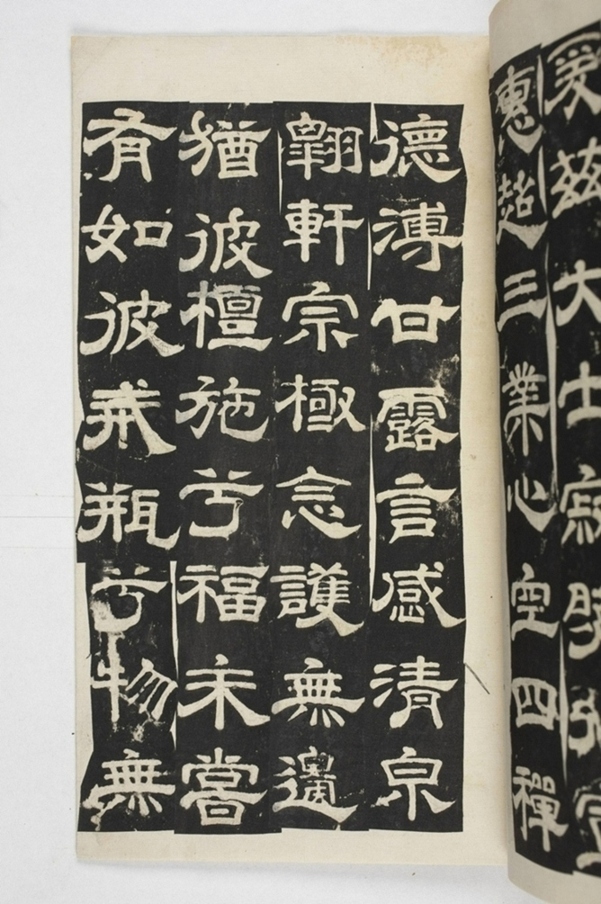 茲大士寂
惠超三業心空四禪
德溥甘露言感清泉
翱軒宗極念護無邊
猶彼檀施兮福未嘗
有如彼戒瓶兮物無